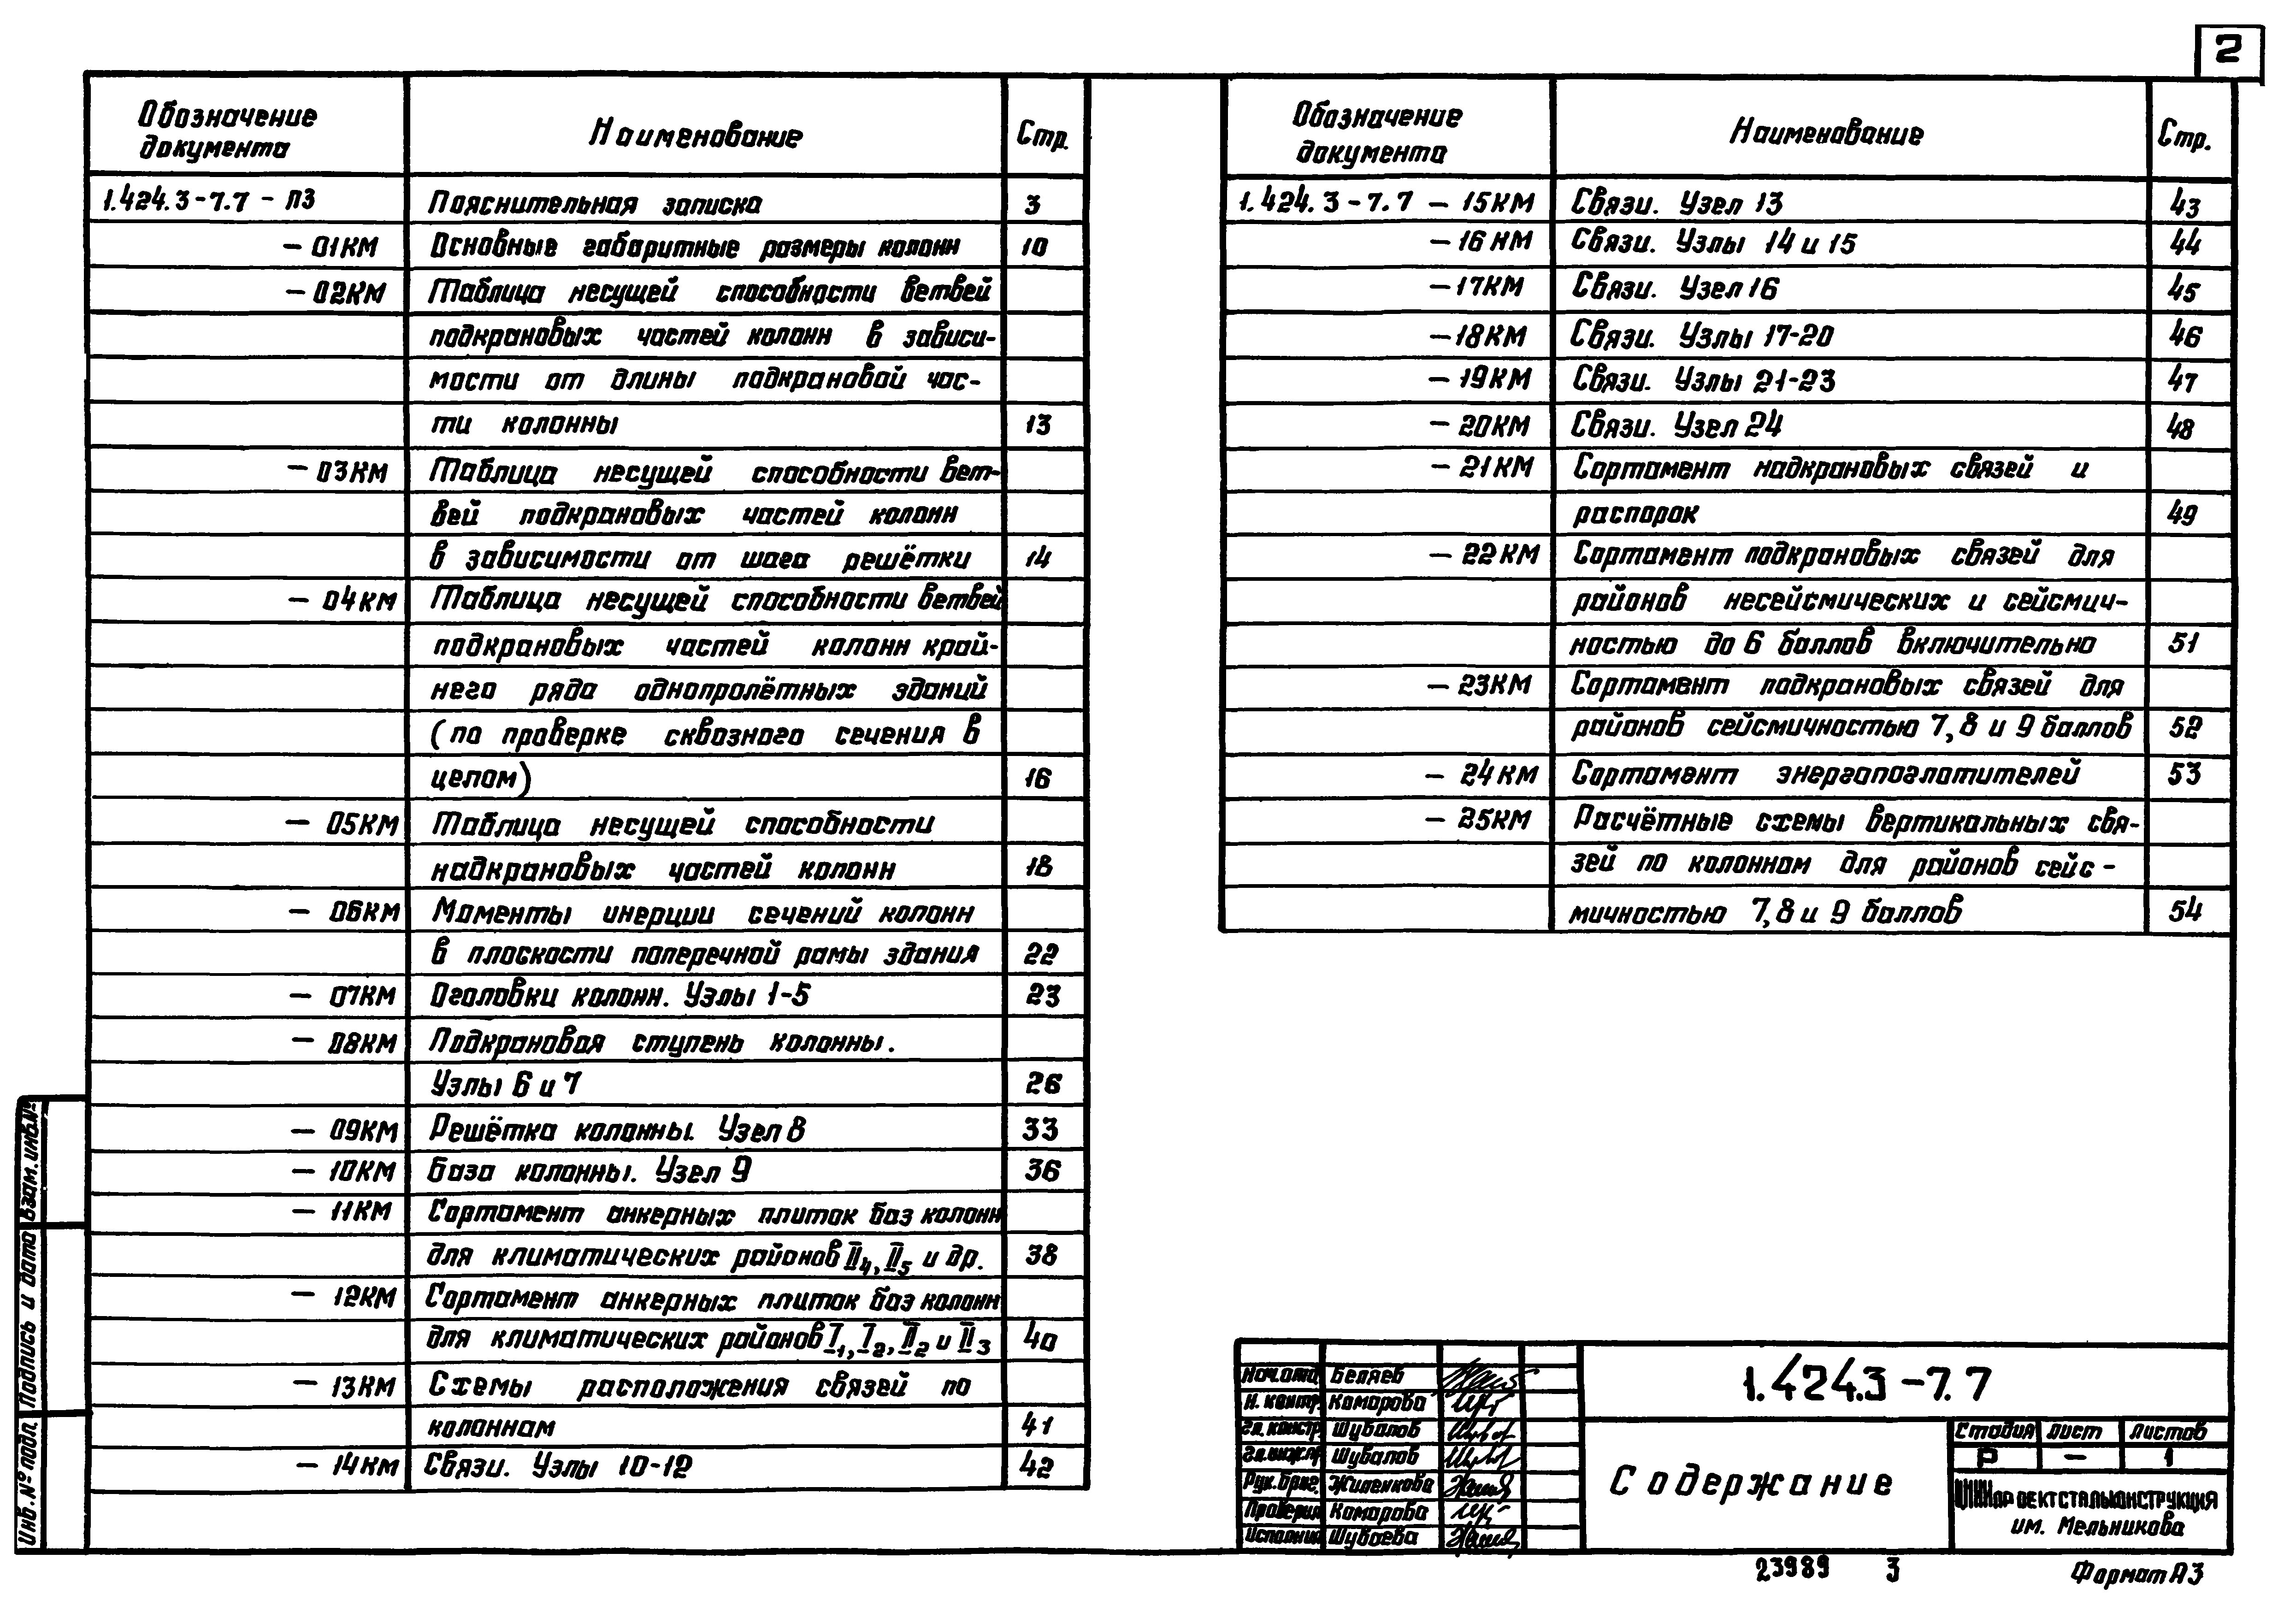 2
Обозначение документа Наименование Стр.
1.424.3-7.7 - ПЗ Пояснительная записка 3
- 01КМ Основные габаритные размеры колонн 10
- 02КМ Таблица несущей способности ветвей
подкрановых частей колонн в зависи-
мости от длины подкрановой час-
ти колонны 13
- 03КМ Таблица несущей способности вет-
вей подкрановых частей колонн
в зависимости от шага решётки 14
- 04КМ Таблица несущей способности ветвей
подкрановых частей колонн край-
него ряда однопролётных зданий
(по проверке сквозного сечения в
целом) 16
- 05КМ Таблица несущей способности
надкрановых частей колонн 18
- 06КМ Моменты инерции сечений колонн
в плоскости поперечной рамы здания 22
- 07КМ Оголовки колонн. Узлы 1-5 23
- 08КМ Подкрановая ступень колонны.
Узлы 6 и 7 26
- 09КМ Решётка колонны. Узел 8 33
- 10КМ База колонны. Узел 9 36
- 11КМ Сортамент анкерных плиток баз колонн
для климатических районов II4, II5 и др. 38
- 12КМ Сортамент анкерных плиток баз колонн
для климатических районов I1, I2, II2 и II3 40
- 13КМ Схемы расположения связей по
колоннам 41
- 14КМ Связи. Узлы 10-12 42
Обозначение документа Наименование Стр.
1.424.3-7.7 - 15КМ Связи. Узел 13 43
- 16КМ Связи. Узлы 14 и 15 44
- 17КМ Связи. Узел 16 45
- 18КМ Связи. Узлы 17-20 46
- 19КМ Связи. Узлы 21-23 47
- 20КМ Связи. Узел 24 48
- 21КМ Сортамент надкрановых связей и
распорок 49
- 22КМ Сортамент подкрановых связей для
районов несейсмических и сейсмич-
ностью до 6 баллов включительно 51
- 23КМ Сортамент подкрановых связей для
районов сейсмичностью 7, 8 и 9 баллов 52
- 24КМ Сортамент энергопоглотителей 53
- 25КМ Расчётные схемы вертикальных свя-
зей по колоннам для районов сейс-
мичностью 7, 8 и 9 баллов 54
Инв.№ подл. Подпись и дата Взам.инв.№
Нач.отд. Беляев
Н. контр. Комарова
Гл. констр. Шувалов
Гл. инж.пр. Шувалов
Рук. бриг. Жиленкова
Проверил Комарова
Исполнил
1.424.3-7.7
Содержание
Стадия Лист Листов
Р - 1
ЦНИИПРОЕКТСТАЛЬКОНСТРУКЦИЯ
им. Мельникова
23989 3
Формат А3